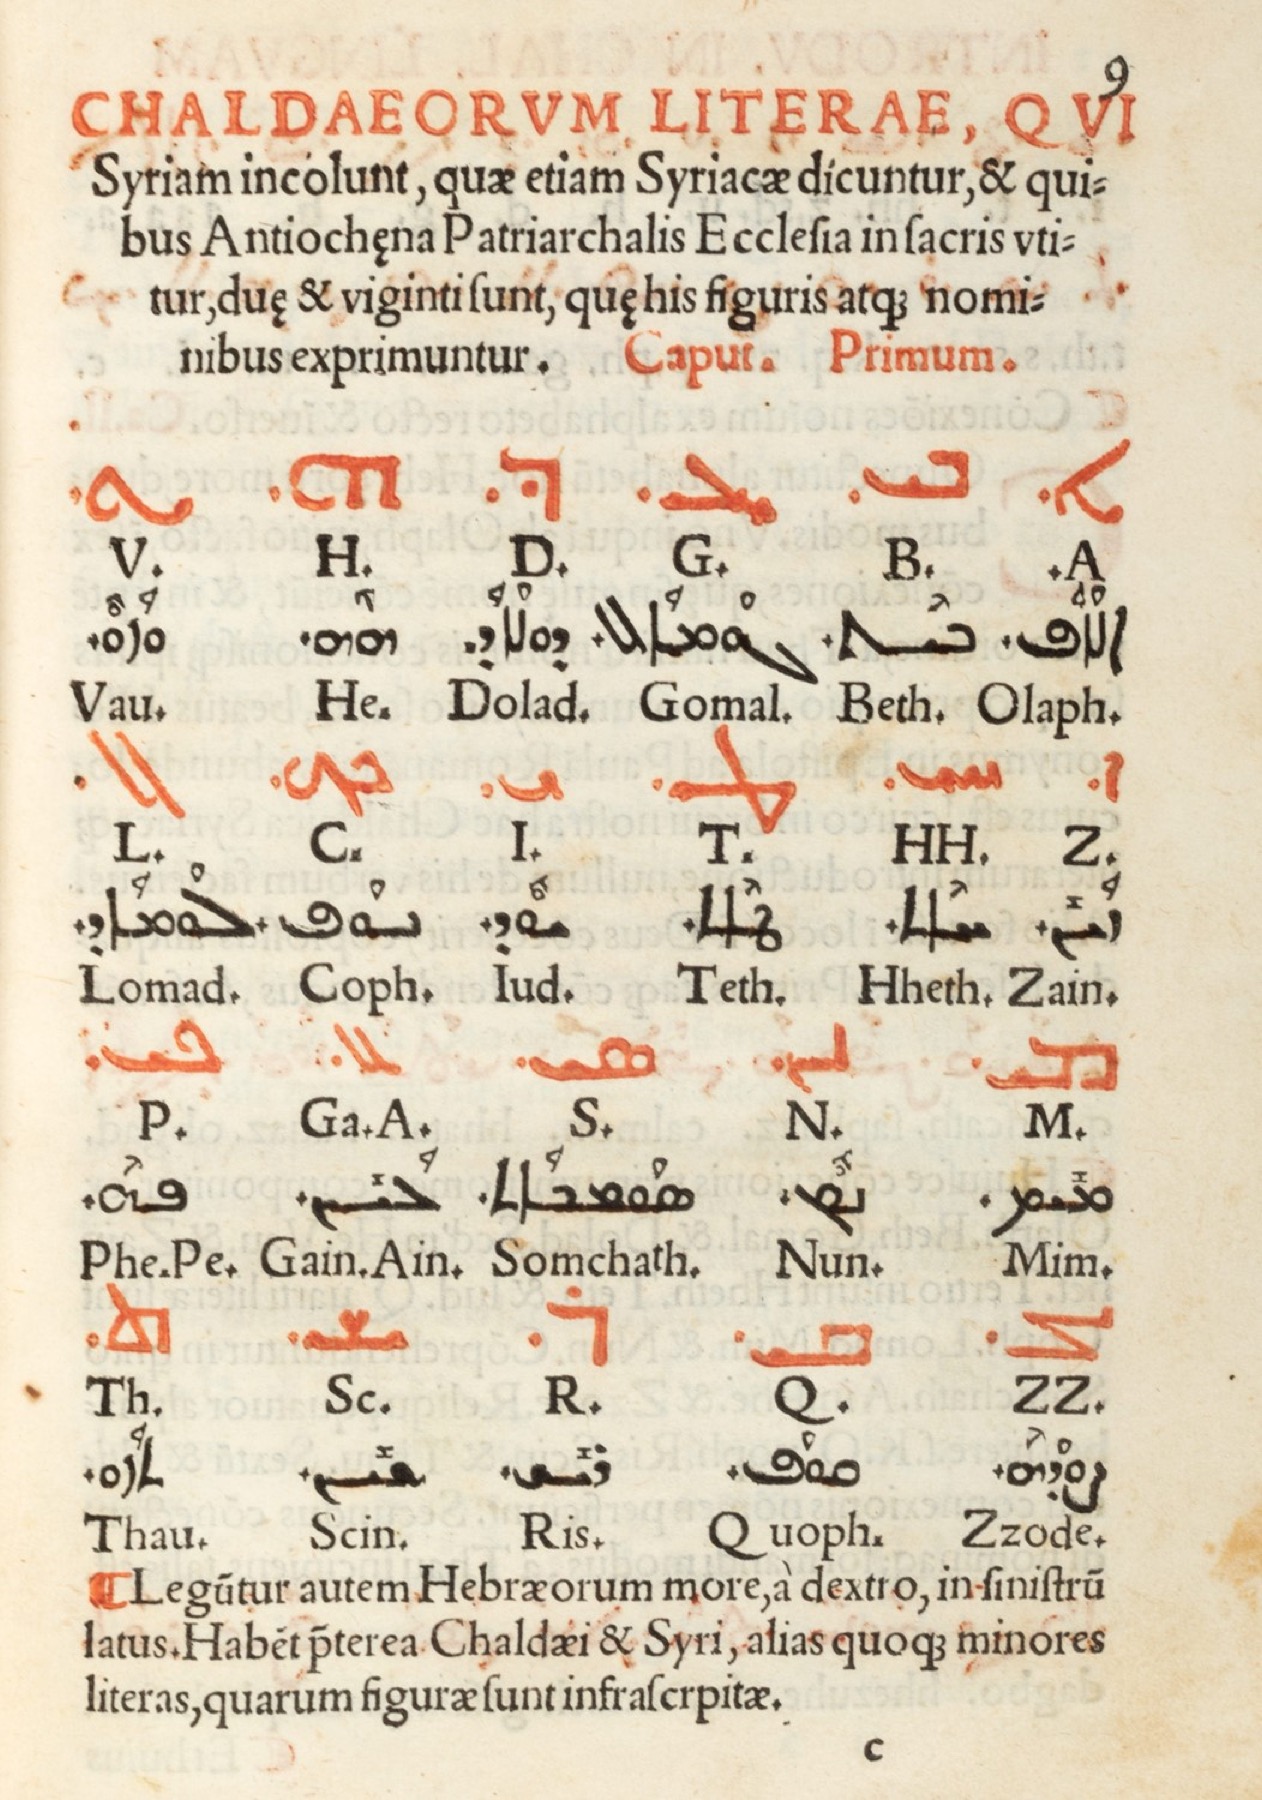 9
CHALDAEORVM LITERAE, QVI
Syriam incolunt, quæ etiam Syriacæ dicuntur, & qui=
bus Antiochęna Patriarchalis Ecclesia in sacris vti=
tur, duę & viginti sunt, quę his figuris atq; nomi=
nibus exprimuntur. Caput. Primum.
ܐ. ܒ. ܓ. ܕ. ܗ. ܘ.
V. H. D. G. B. .A
Vau. He. Dolad. Gomal. Beth. Olaph.
ܙ. ܚ. ܛ. ܝ. ܟ. ܠ.
L. C. I. T. HH. Z.
Lomad. Coph. Iud. Teth. Hheth. Zain.
ܡ. ܢ. ܣ. ܥ. ܦ.
P. Ga.A. S. N. M.
Phe.Pe. Gain.Ain. Somchath. Nun. Mim.
ܨ. ܩ. ܪ. ܫ. ܬ.
Th. Sc. R. Q. ZZ.
Thau. Scin. Ris. Quoph. Zzode.
¶ Legūtur autem Hebræorum more, à dextro, in sinistrū
latus. Habēt p̄terea Chaldæi & Syri, alias quoq; minores
literas, quarum figuræ sunt infrascrpitæ.
c